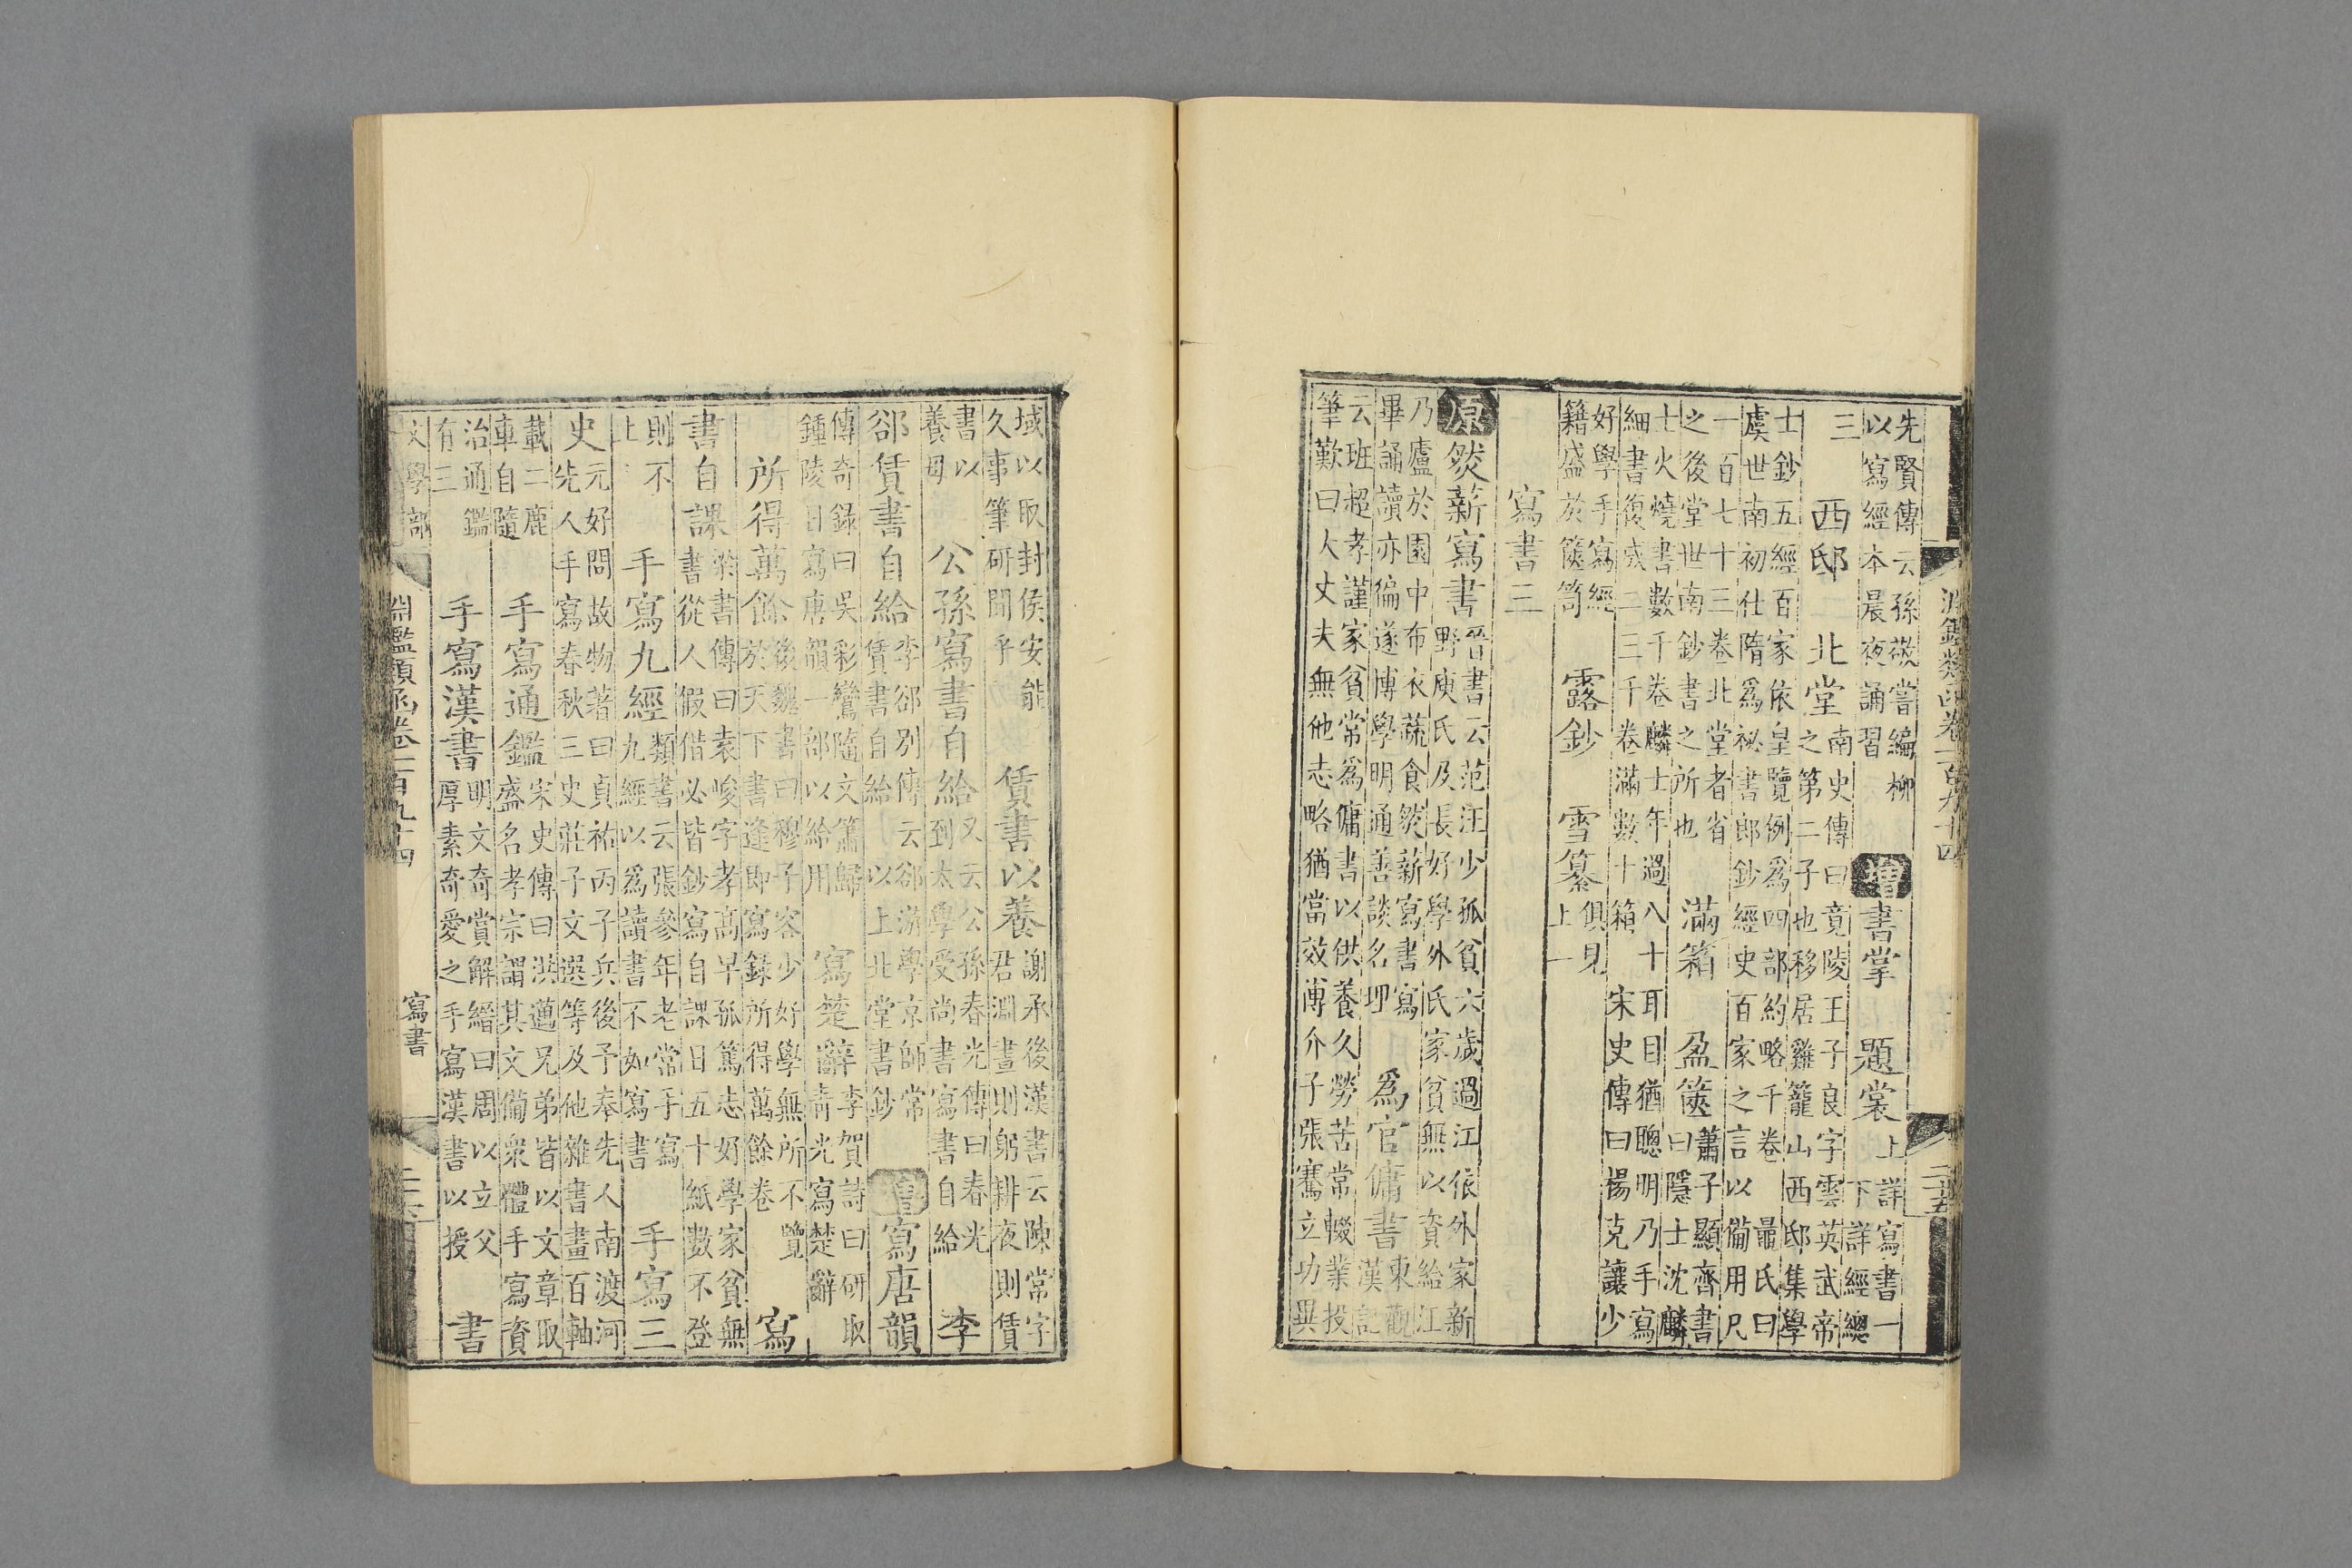 淵鑑類函卷一百九十四 二十五
先賢傳云孫敬嘗編柳以寫經本晨夜誦習 增 書掌 題裳 上詳寫書一下詳經總
三 西邸 北堂 南史傳曰竟陵王子良字雲英武帝之第二子也移居雞籠山西邸集學
士鈔五經百家依皇覽例爲四部約略千卷 虞世南初仕隋爲祕書郎鈔經史百家之言以備用凡 晁氏曰
一百七十三卷北堂者省之後堂世南鈔書之所也 滿箱 盈篋 蕭子顯齊書曰隱士沈麟
士火燒書數千卷麟士年過八十耳目猶聰明乃手寫細書復成二三千卷滿數十箱 宋史傳曰楊克讓少
好學手寫經籍盛於篋笥 露鈔 雪纂 俱見上一
寫書三
原 然薪寫書 晉書云范汪少孤貧六歲過江依外家新野庾氏及長好學外氏家貧無以資給江
乃廬於園中布衣蔬食然薪寫書寫畢誦讀亦徧遂博學明通善談名理 爲官傭書 東觀漢記
云班超孝謹家貧常爲傭書以供養久勞苦常輟業投筆歎曰大丈夫無他志略猶當效傅介子張騫立功異
域以取封侯安能久事筆研間乎 賃書以養 謝承後漢書云陳常字君淵晝則躬耕夜則賃
書以養母 公孫寫書自給 又云公孫春光傳曰春光到太學受尚書寫書自給 李
郃賃書自給 李郃別傳云郃游學京師常賃書自給 以上北堂書鈔 增 寫唐韻
傳奇錄曰吳彩鸞隨文簫歸鍾陵日寫唐韻一部以給用 寫楚辭 李賀詩曰研取青光寫楚辭
所得萬餘 後魏書曰穆子容少好學無所不覽於天下書逢即寫錄所得萬餘卷 寫
書自課 梁書傳曰袁峻字孝高早孤篤志好學家貧無書從人假借必皆鈔寫自課日五十紙數不登
則不止 手寫九經 類書云張參年老常手寫九經以爲讀書不如寫書 手寫三
史 元好問故物著曰貞祐丙子兵後予奉先人南渡河先人手寫春秋三史莊子文選等及他雜書畫百軸
載二鹿車自隨 手寫通鑑 宋史傳曰洪邁兄弟皆以文章取盛名孝宗謂其文備衆體手寫資
治通鑑有三 手寫漢書 明文奇賞解縉曰周以立父厚素奇愛之手寫漢書以授 書
文學部 淵鑑類函卷一百九十四 寫書 二十六